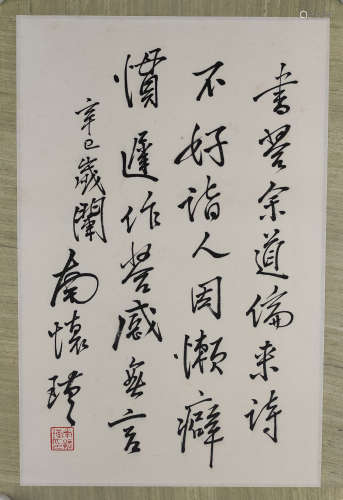 書答余道倫来詩
不好詣人因懶癖
慣遲作答感無言
辛巳歲闌 南懷瑾